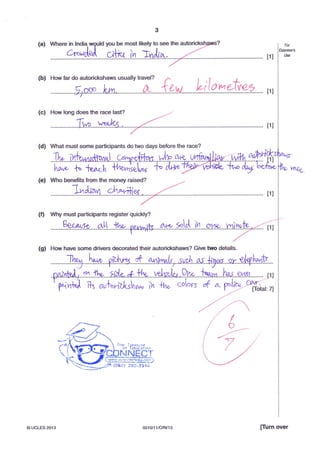 3
(a) Where in India would you be most likely to see the autorickshaws?
For Examiner's Use
Crowded cities in India. [1]
(b) How far do autorickshaws usually travel?
5,000 km. a few kilometres [1]
(c) How long does the race last?
Two weeks. [1]
(d) What must some participants do two days before the race?
The international competitors who are unfamiliar with autorickshaws [1]
have to teach themselves to drive their vehicle two days before the race
(e) Who benefits from the money raised?
Indian charities. [1]
(f) Why must participants register quickly?
Because all the permits are sold in one minute. [1]
(g) How have some drivers decorated their autorickshaws? Give two details.
They have pictures of animals, such as tigers or elephants
painted, on the side of the vehicles. One team has even [1]
painted its autorickshaw in the colors of a police car.
[Total: 7]
6
7
The
Education
CONNECT
© UCLES 2013
0510/11/O/N/13
[Turn over